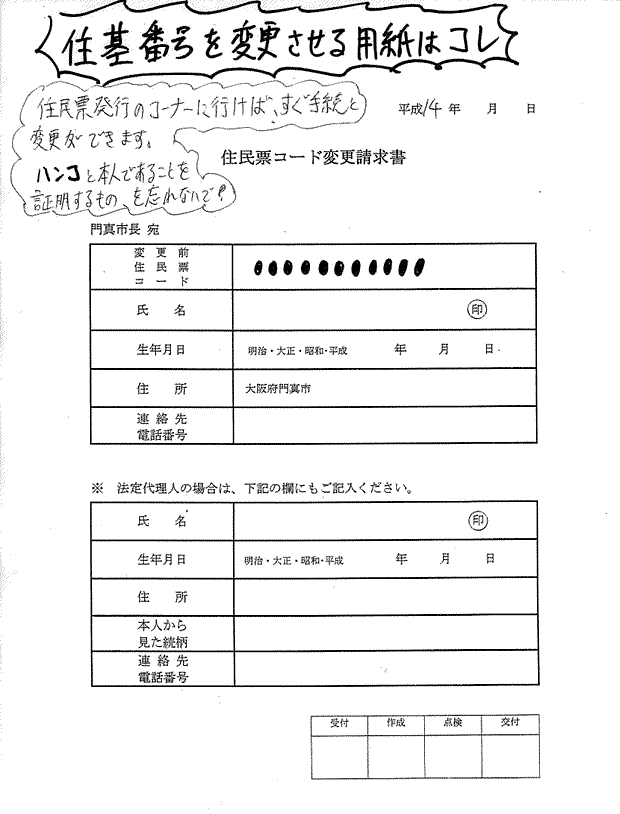 住基番号を変更させる用紙はコレ
住民票発行のコーナーに行けば、すぐ手続と
変更ができます。
ハンコと本人であることを
証明するもの、を忘れないで!
平成14年 月 日
住民票コード変更請求書
門真市長 宛
変更前
住民票
コード
氏 名 印
生年月日 明治・大正・昭和・平成 年 月 日
住 所 大阪府門真市
連絡先
電話番号
※ 法定代理人の場合は、下記の欄にもご記入ください。
氏 名 印
生年月日 明治・大正・昭和・平成 年 月 日
住 所
本人から
見た続柄
連絡先
電話番号
受付 作成 点検 交付